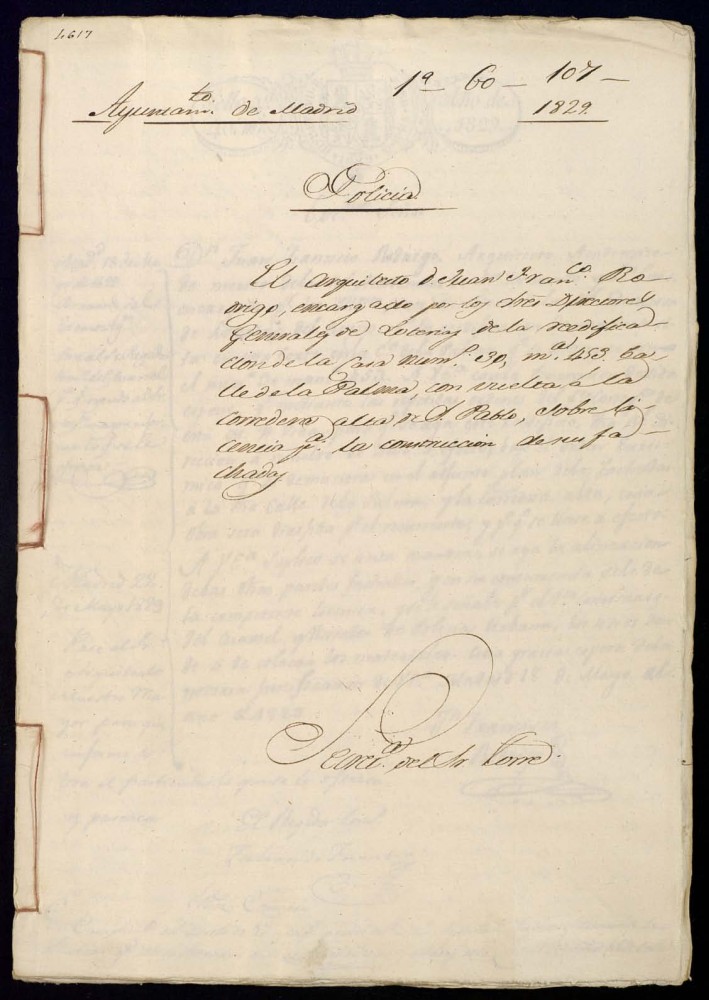 4617
1ª 60 — 107 —
Ayuntam.to de Madrid
1829.
Policia
El Arquitecto d. Juan Fran.co Ro-
drigo, encargado por los Sres Directores
Generales de Loterias de la reedifica-
cion de la Casa num.º 30, m.a 453 Ca-
lle de la Palma, con vuelta á la
Corredera alta de S. Pablo, sobre li-
cencia p.a la construccion de sus fa-
chadas
Secret.a del Sr Torre.